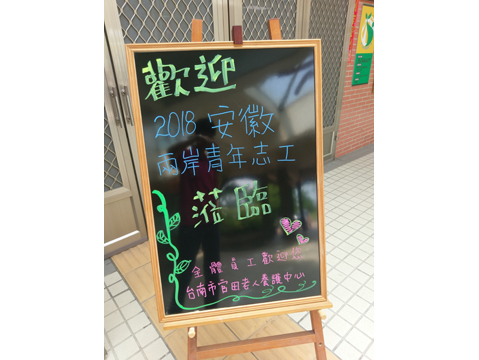 歡迎
2018 安徽
兩岸青年志工
蒞臨
全體員工歡迎您
台南市官田老人養護中心